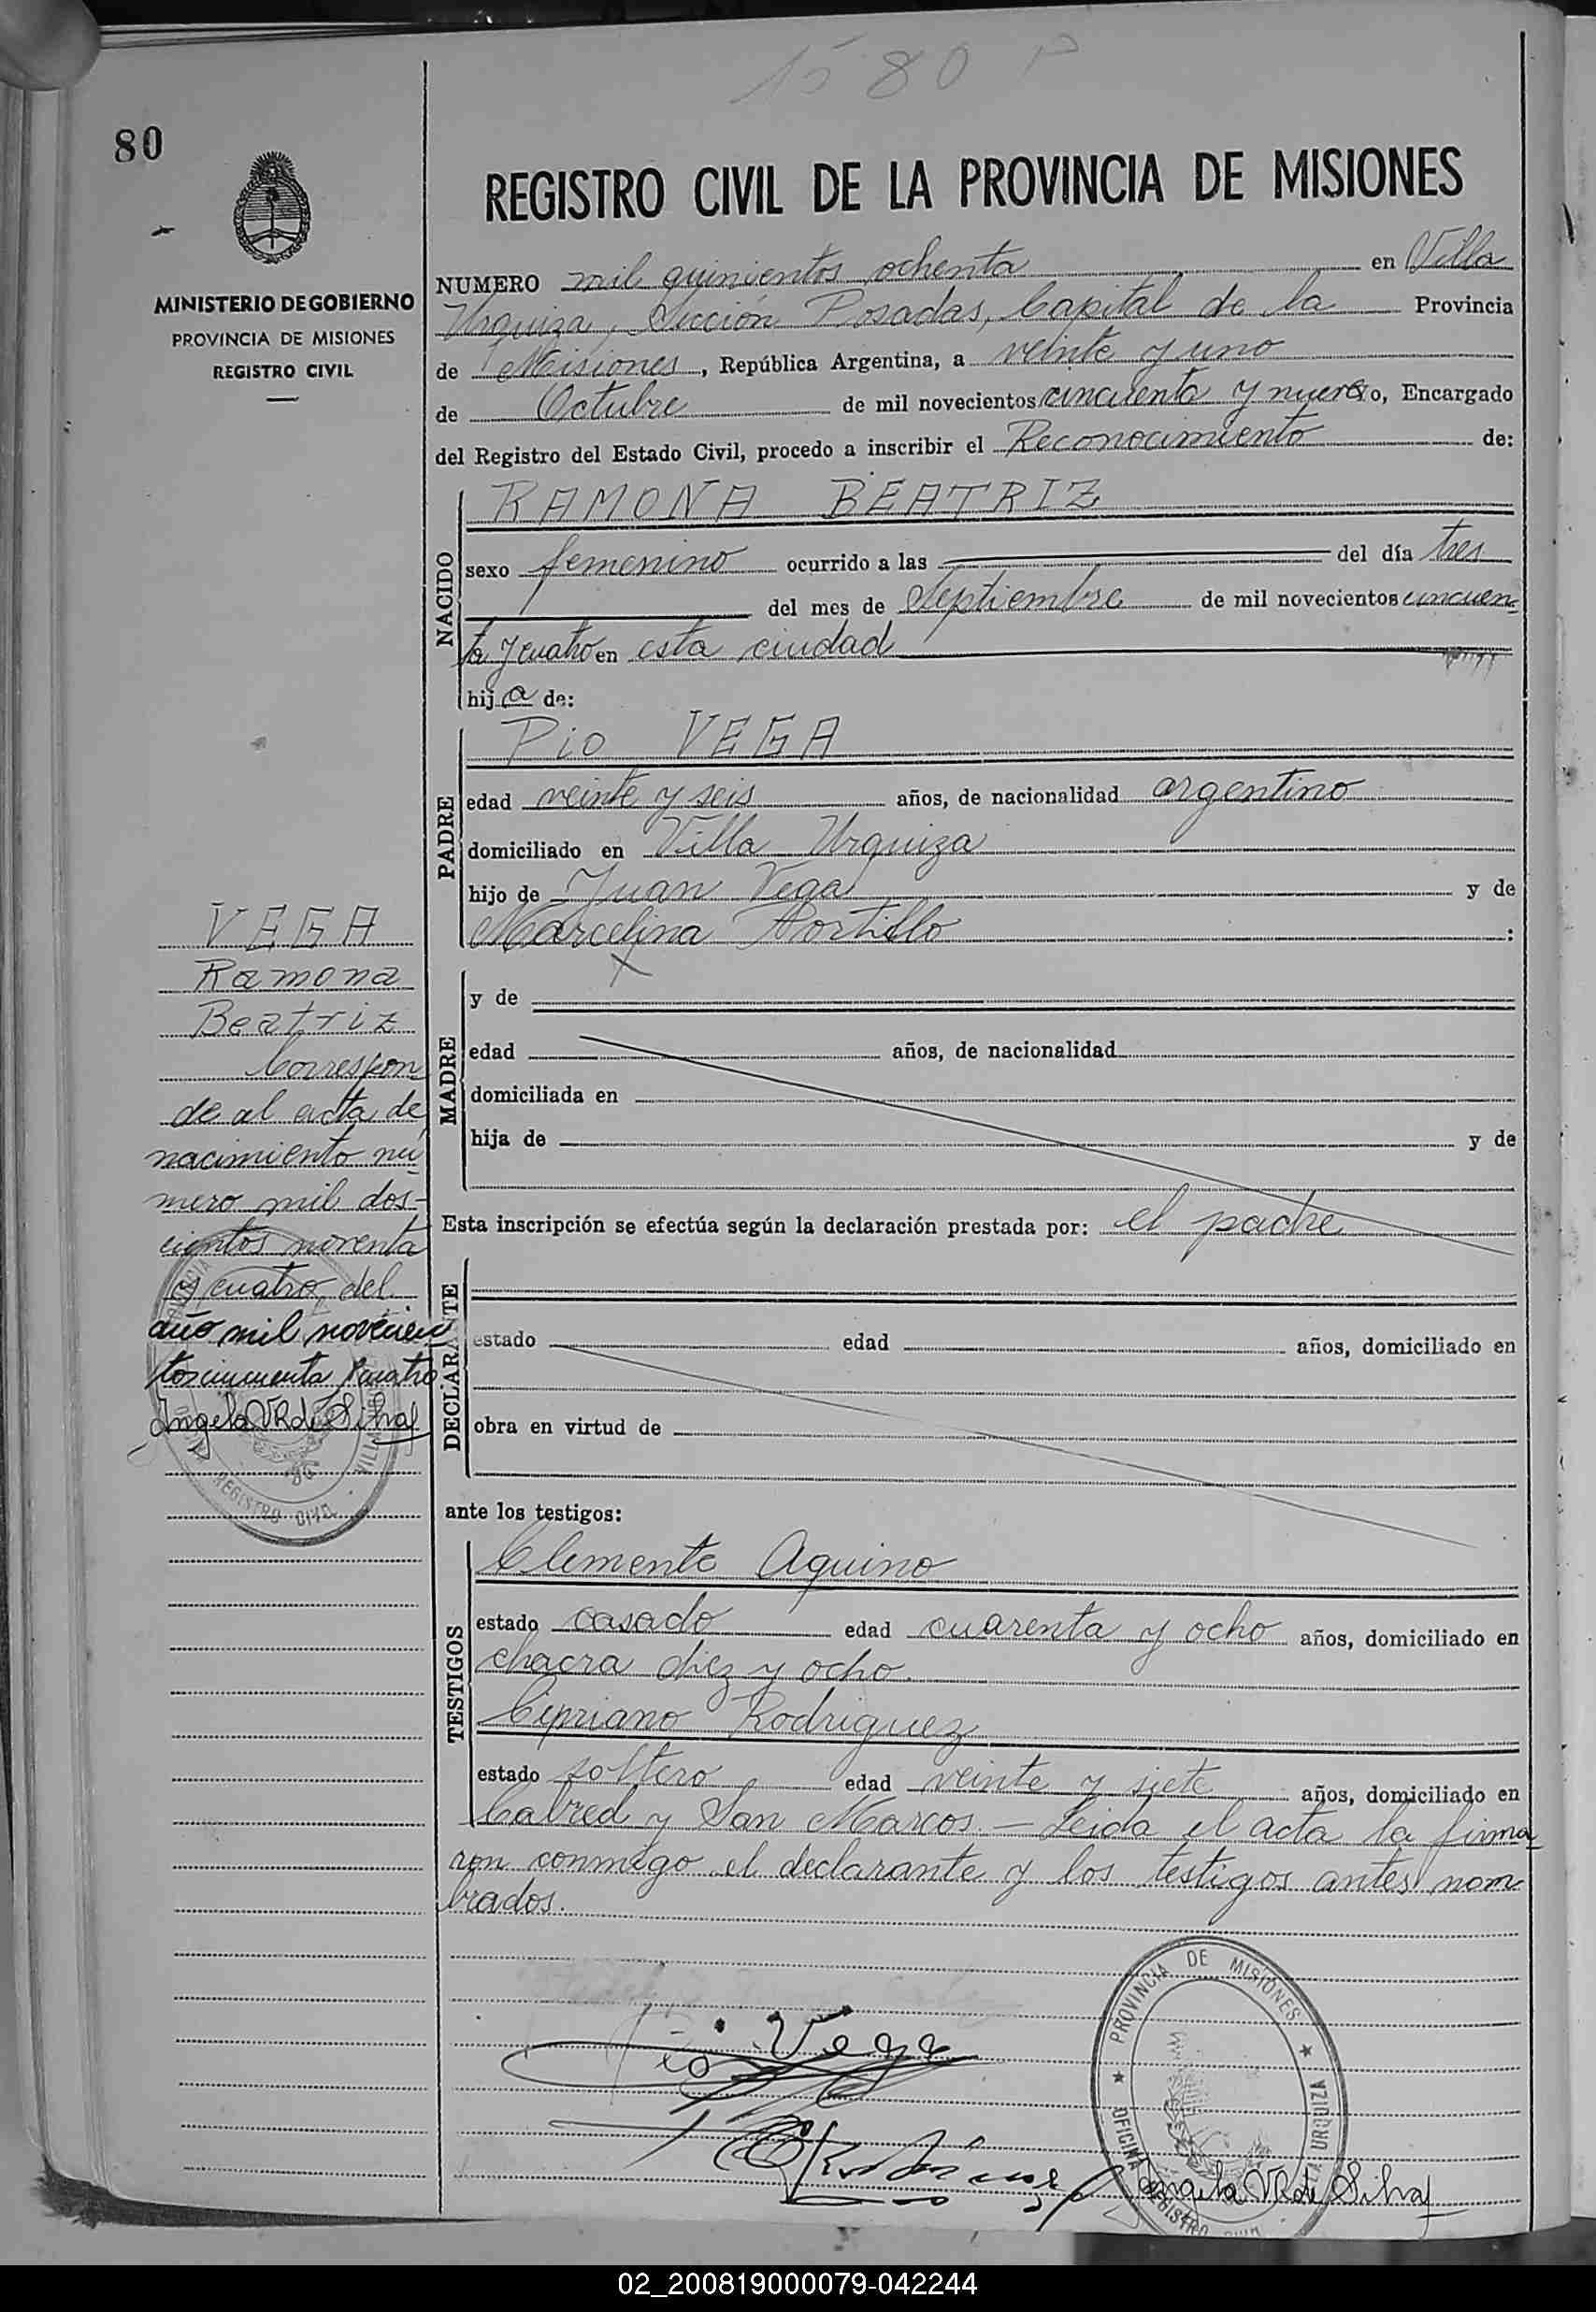 1580 P
80
REGISTRO CIVIL DE LA PROVINCIA DE MISIONES
MINISTERIO DE GOBIERNO
PROVINCIA DE MISIONES
REGISTRO CIVIL
NUMERO mil quinientos ochenta en Villa
Urquiza, Sección Posadas, Capital de la Provincia
de Misiones, República Argentina, a veinte y uno
de Octubre de mil novecientos cincuenta y nueve yo, Encargado
del Registro del Estado Civil, procedo a inscribir el Reconocimiento de:
NACIDO
RAMONA BEATRIZ
sexo femenino ocurrido a las del día tres
del mes de Septiembre de mil novecientos cincuen-
ta y cuatro en esta ciudad
hij a de:
PADRE
Pio VEGA
edad veinte y seis años, de nacionalidad argentino
domiciliado en Villa Urquiza
hijo de Juan Vega y de
Marcelina Portillo :
MADRE
y de
edad años, de nacionalidad
domiciliada en
hija de y de
Esta inscripción se efectúa según la declaración prestada por: el padre
DECLARANTE
estado edad años, domiciliado en
obra en virtud de
ante los testigos:
TESTIGOS
Clemente Aquino
estado casado edad cuarenta y ocho años, domiciliado en
chacra diez y ocho.
Cipriano Rodriguez
estado soltero edad veinte y siete años, domiciliado en
Cabred y San Marcos. — Leida el acta la firma-
ron conmigo el declarante y los testigos antes nom-
brados.
VEGA
Ramona
Beatriz
Correspon-
de al acta de
nacimiento nú-
mero mil dos-
cientos noventa
y cuatro del
año mil novecien
tos cincuenta y cuatro
Angela VR de Silva
REGISTRO CIVIL
Pio Vega
PROVINCIA DE MISIONES
OFICINA REGISTRO CIVIL
VILLA URQUIZA
Angela VR de Silva
02_200819000079-042244